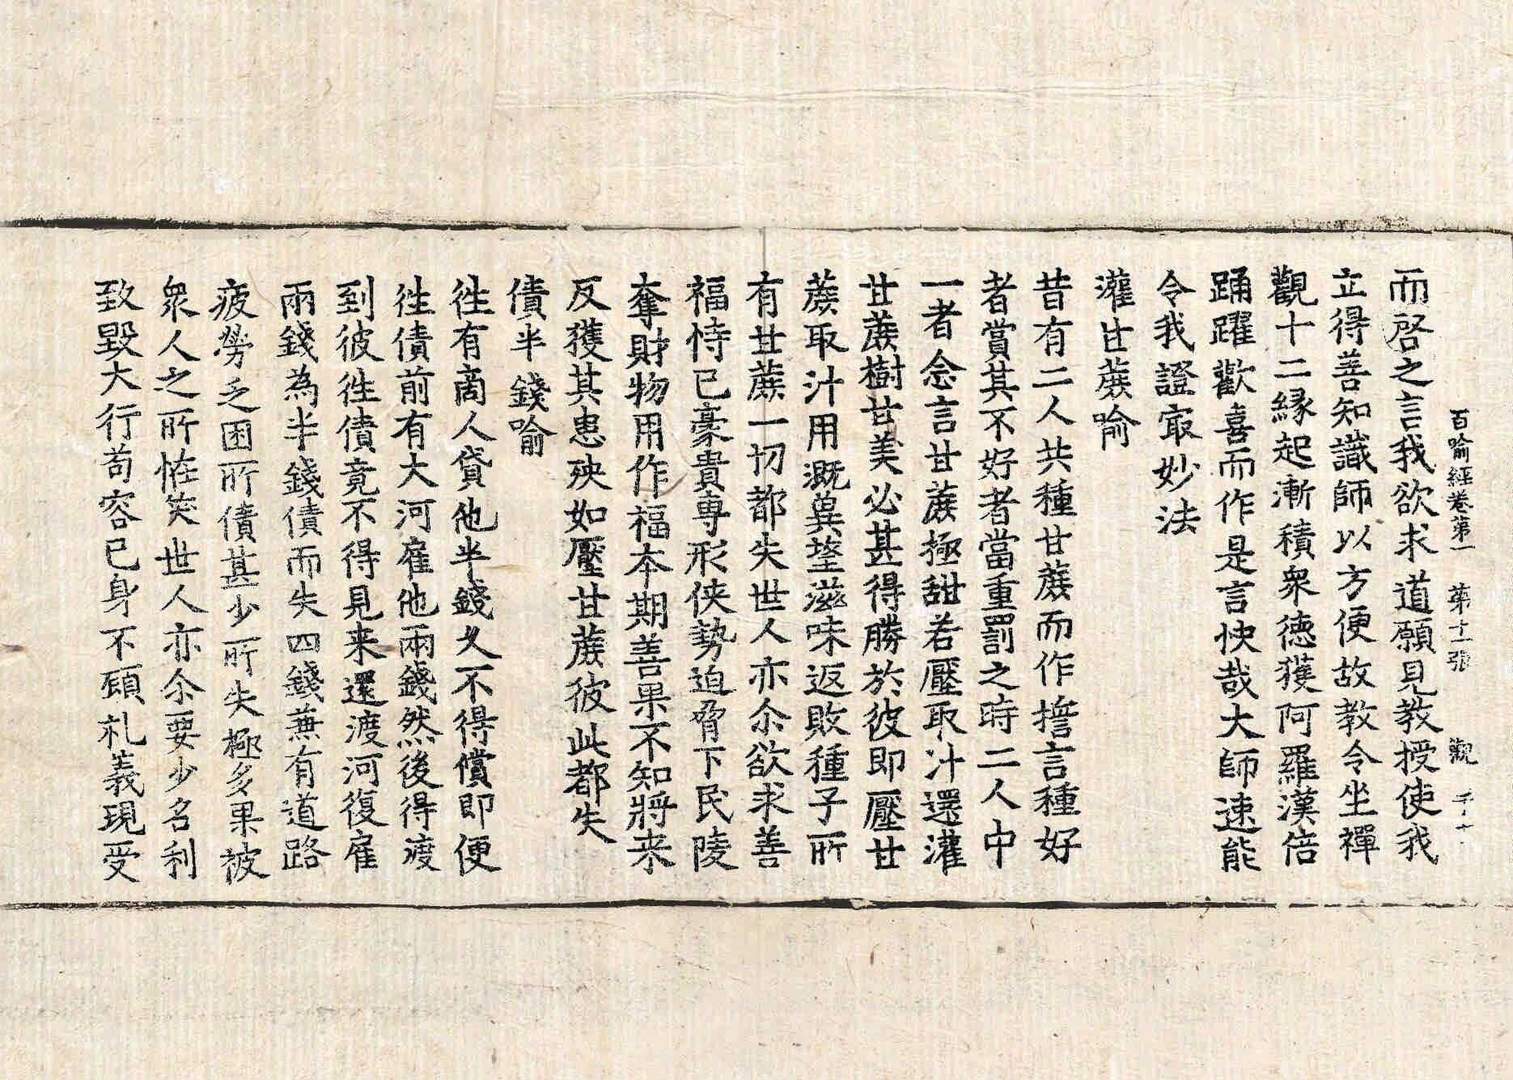 百喻經卷第一 第十一張 觀
而啓之言我欲求道願見教授使我
立得善知識師以方便故教令坐禪
觀十二緣起漸積衆德獲阿羅漢倍
踊躍歡喜而作是言快哉大師速能
令我證㝡妙法
灌甘蔗喻
昔有二人共種甘蔗而作擔言種好
者賞其不好者當重罰之時二人中
一者念言甘蔗極甜若壓取汁還灌
甘蔗樹甘美必甚得勝於彼即壓甘
蔗取汁用溉冀望滋味返敗種子所
有甘蔗一切都失世人亦尒欲求善
福恃已豪貴專形俠勢迫脅下民陵
奪財物用作福夲期善果不知將来
反獲其患殃如壓甘蔗彼此都失
債半錢喻
徃有商人貸他半錢乆不得償即便
徃債前有大河雇他兩錢然後得渡
到彼徃債竟不得見来還渡河復雇
兩錢為半錢債而失四錢蕪有道路
疲勞乏困所債甚少所失極多果被
衆人之所恠笑世人亦尒要少名利
致毀大行苟容已身不顧礼義現受